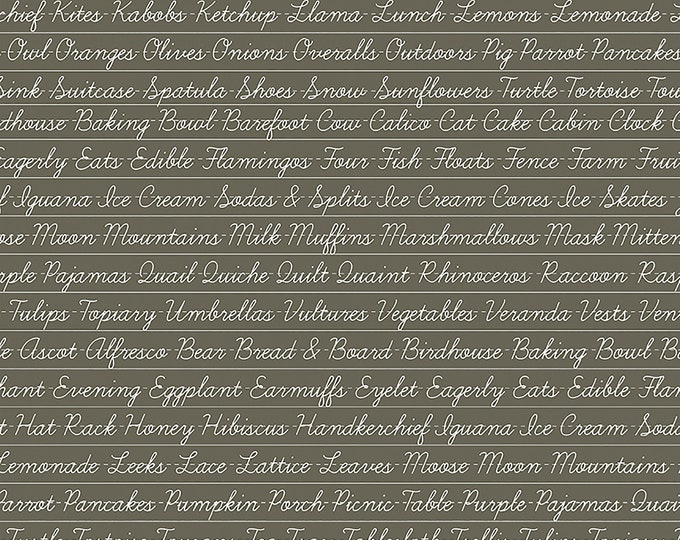 chief Kites Kabobs Ketchup Llama Lunch Lemons Lemonade
Owl Oranges Olives Onions Overalls Outdoors Pig Parrot Pancakes
Sink Suitcase Spatula Shoes Snow Sunflowers Turtle Tortoise Tou
dhouse Baking Bowl Barefoot Cow Calico Cat Cake Cabin Clock
Eagerly Eats Edible Flamingos Four Fish Floats Fence Farm Frui
f Iguana Ice Cream Sodas & Splits Ice Cream Cones Ice Skates
ose Moon Mountains Milk Muffins Marshmallows Mask Mitten
rple Pajamas Quail Quiche Quilt Quaint Rhinoceros Raccoon Rasp
Tulips Topiary Umbrellas Vultures Vegetables Veranda Vests Ven
le Ascot Alfresco Bear Bread & Board Birdhouse Baking Bowl Ba
hant Evening Eggplant Earmuffs Eyelet Eagerly Eats Edible Flam
t Hat Rack Honey Hibiscus Handkerchief Iguana Ice Cream Soda
Lemonade Leeks Lace Lattice Leaves Moose Moon Mountains
Parrot Pancakes Pumpkin Porch Picnic Table Purple Pajamas Quai
Turtle Tortoise Tea Tablecloth Trellis Tulips Topiary